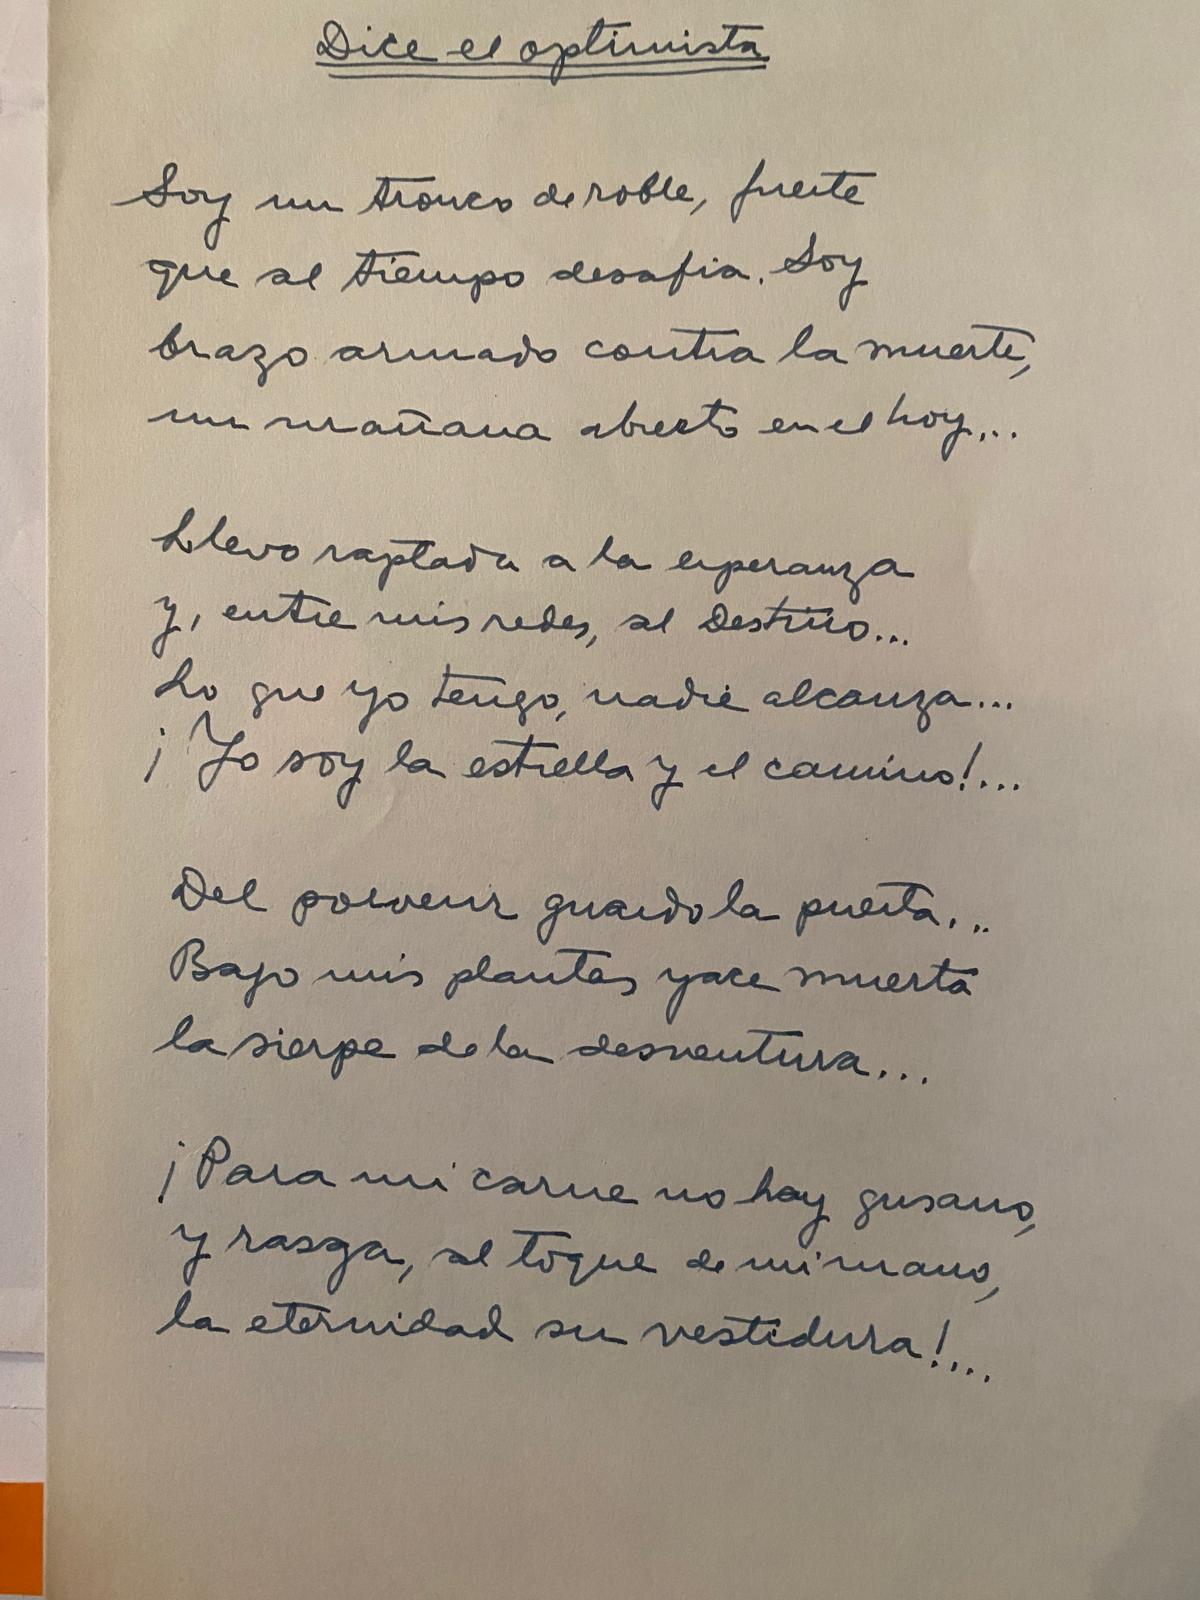 Dice el optimista
Soy un tronco de roble, fuerte
que al tiempo desafia. Soy
brazo armado contra la muerte,
un mañana abierto en el hoy...
Llevo raptada a la esperanza
y, entre mis redes, al Destino...
Lo que yo tengo, nadie alcanza...
¡Yo soy la estrella y el camino!...
Del porvenir guardo la puerta...
Bajo mis plantas yace muerta
la sierpe de la desventura...
¡Para mi carne no hay gusano,
y rasga, al toque de mi mano,
la eternidad su vestidura!....